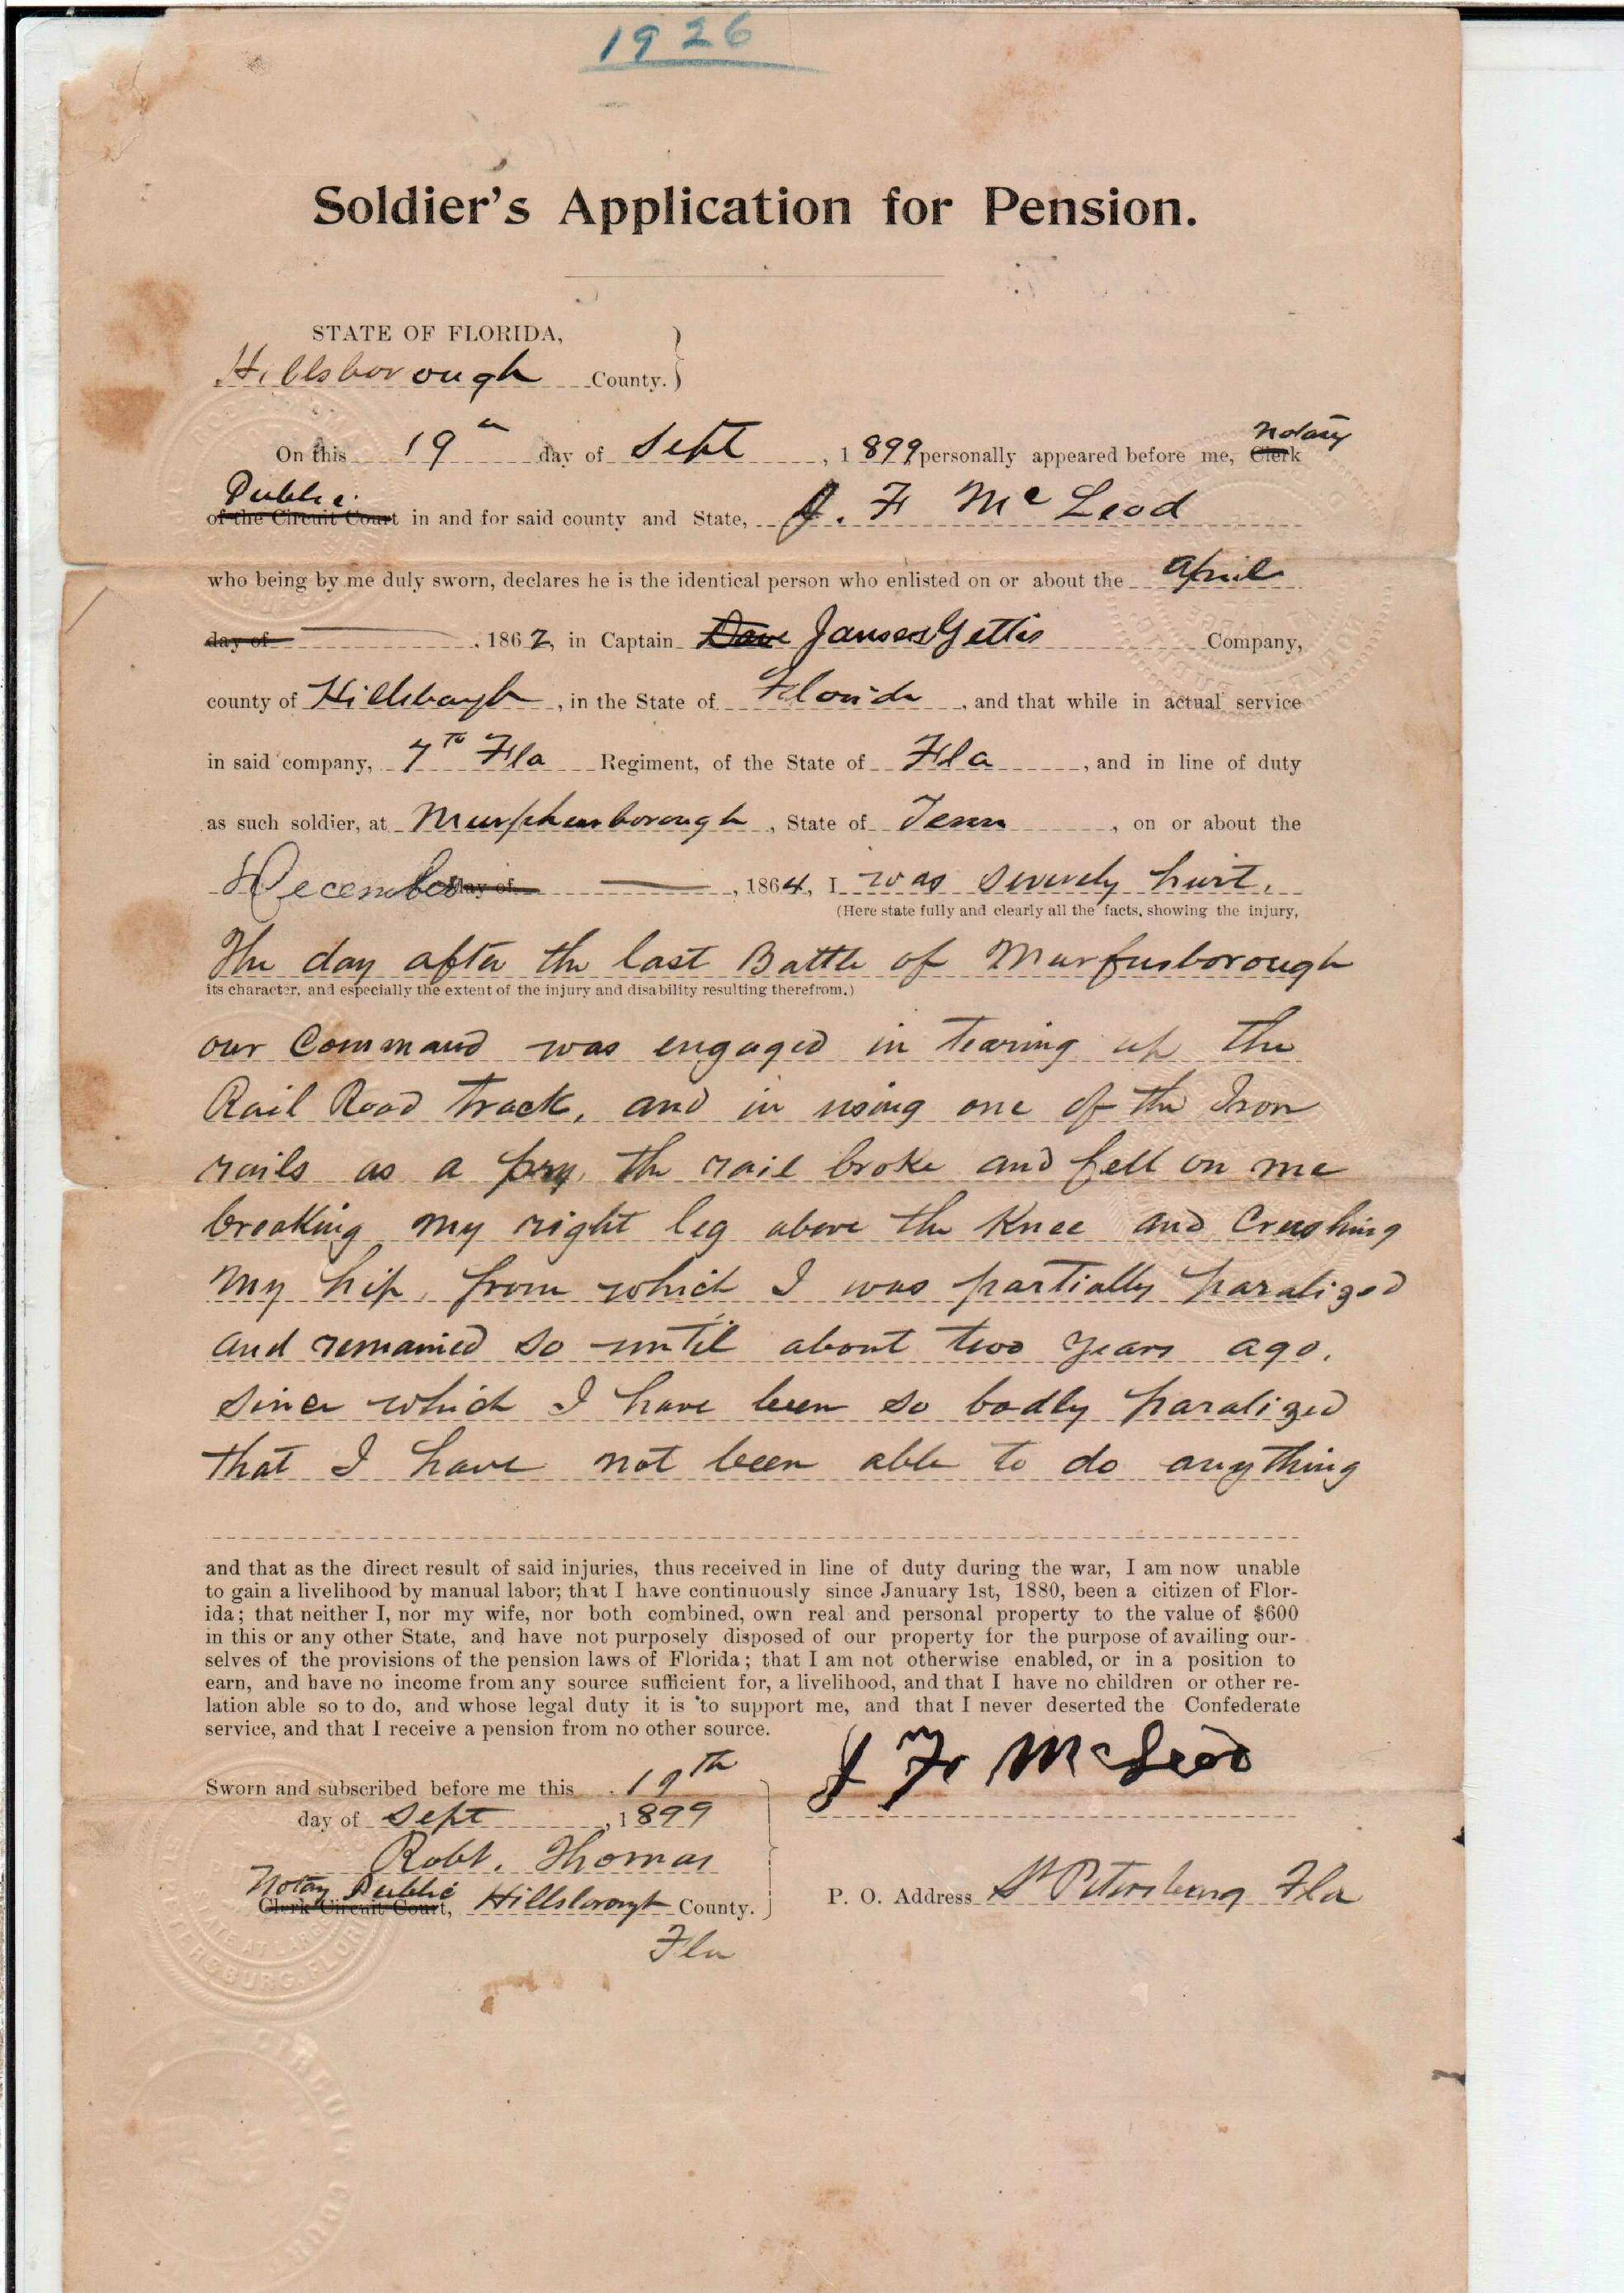 1926
Soldier's Application for Pension.
STATE OF FLORIDA,
Hillsborough County.
On this 19th day of Sept, 1899, personally appeared before me, Clerk Notary
Public
of the Circuit Court in and for said county and State, J. F. McLeod
who being by me duly sworn, declares he is the identical person who enlisted on or about the April
day of , 1862, in Captain Dave James Gettis Company,
county of Hillsbough, in the State of Florida, and that while in actual service
in said company, 7th Fla Regiment, of the State of Fla, and in line of duty
as such soldier, at Murphensborough, State of Tenn, on or about the
December day of , 1864, I was severely hurt.
(Here state fully and clearly all the facts, showing the injury,
The day after the last Battle of Murfusborough
its character, and especially the extent of the injury and disability resulting therefrom.)
our Command was engaged in Tearing up the
Rail Road track, and in using one of the Iron
rails as a pry, the rail broke and fell on me
breaking my right leg above the Knee and Crushing
my hip, from which I was partially paralized
and remained so until about two years ago.
Since which I have been so badly paralized
that I have not been able to do anything
and that as the direct result of said injuries, thus received in line of duty during the war, I am now unable
to gain a livelihood by manual labor; that I have continuously since January 1st, 1880, been a citizen of Flor-
ida; that neither I, nor my wife, nor both combined, own real and personal property to the value of $600
in this or any other State, and have not purposely disposed of our property for the purpose of availing our-
selves of the provisions of the pension laws of Florida; that I am not otherwise enabled, or in a position to
earn, and have no income from any source sufficient for, a livelihood, and that I have no children or other re-
lation able so to do, and whose legal duty it is to support me, and that I never deserted the Confederate
service, and that I receive a pension from no other source.
J F McLeod
Sworn and subscribed before me this 19th
day of Sept, 1899
Robt. Thomas
Notary Public
Clerk Circuit Court, Hillsborough County.
Fla
P. O. Address St Petersburg Fla